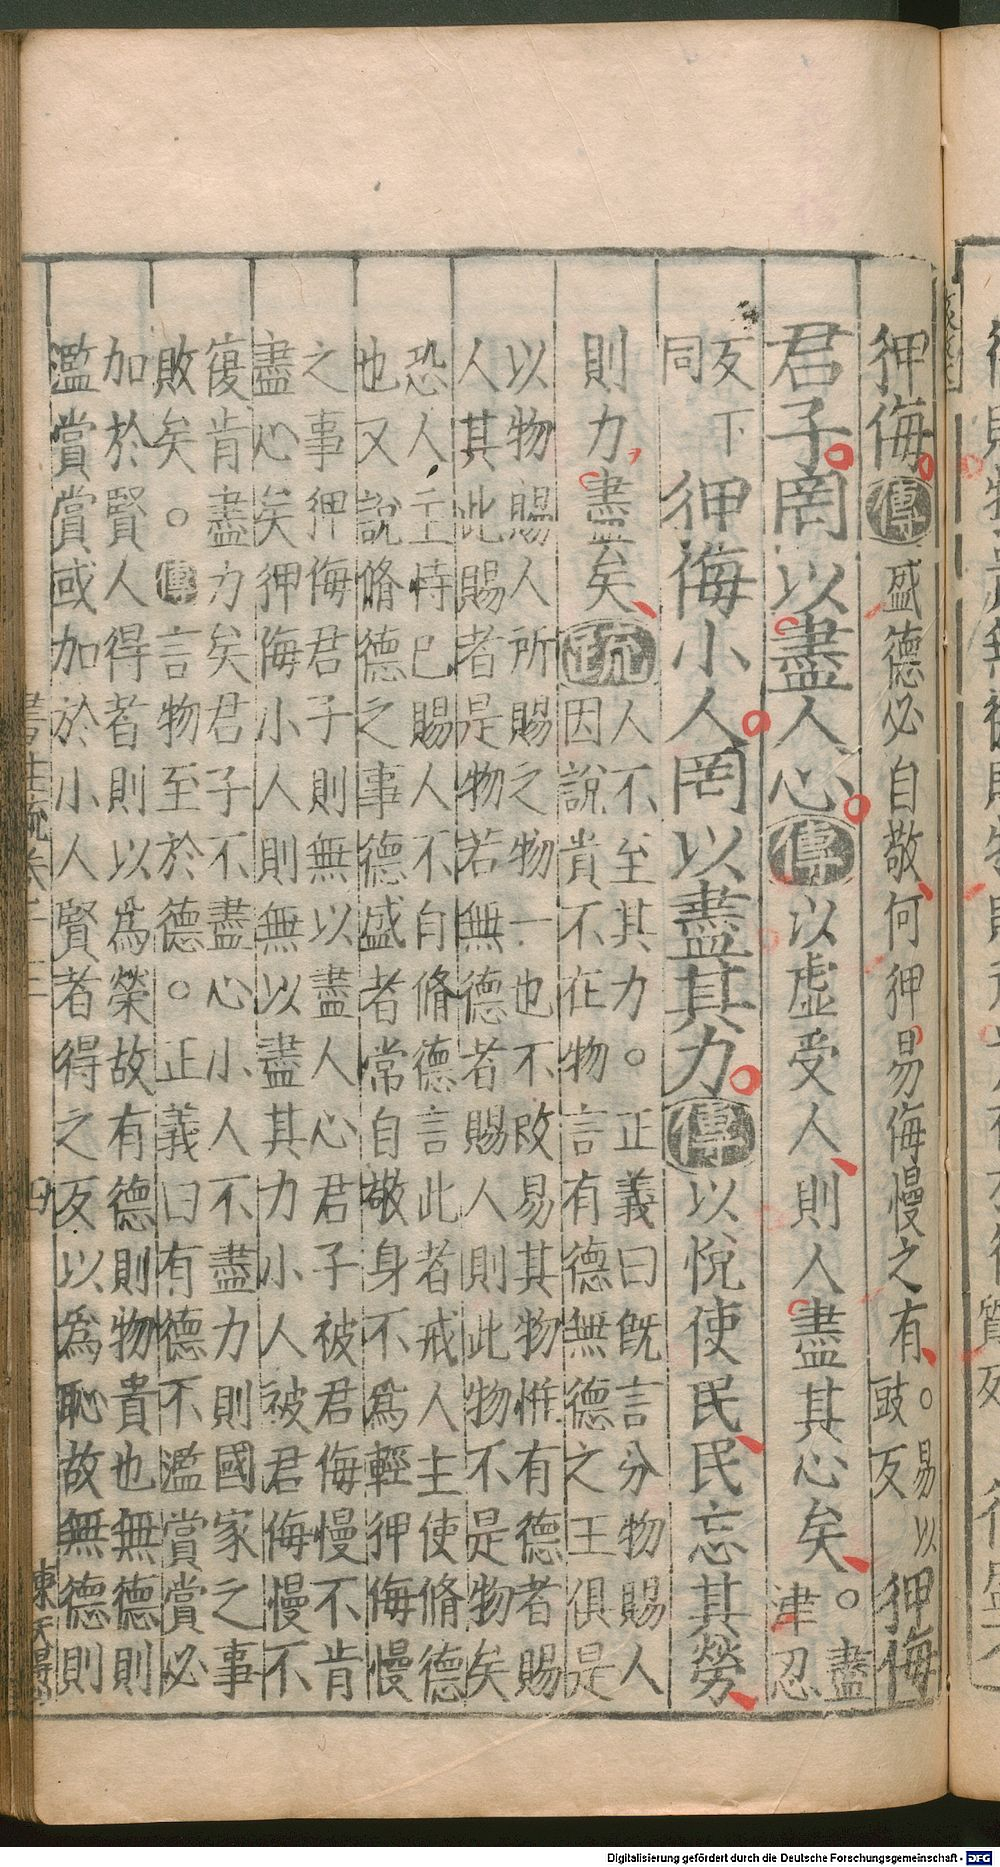 狎侮傳盛德必自敬何狎易侮慢之有。易以豉反狎侮
君子罔以盡人心傳以虛受人則人盡其心矣。盡津忍
反下同狎侮小人罔以盡其力傳以悅使民民忘其勞
則力盡矣疏人不至其力。正義曰旣言分物賜人
因說貴不在物言有德無德之王俱是
以物賜人所賜之物一也不改易其物惟有德者賜
人其此賜者是物若無德者賜人則此物不是物矣
恐人主恃已賜人不自脩德言此者戒人主使脩德
也又說脩德之事德盛者常自敬身不爲輕狎侮慢
之事狎侮君子則無以盡人心君子被君侮慢不肯
盡心矣狎侮小人則無以盡其力小人被君侮慢不
復肯盡力矣君子不盡心小人不盡力則國家之事
敗矣。傳言物至於德。正義曰有德不濫賞賞必
加於賢人得者則以爲榮故有德則物貴也無德則
濫賞賞或加於小人賢者得之反以爲恥故無德則
Digitalisierung gefördert durch die Deutsche Forschungsgemeinschaft - DFG